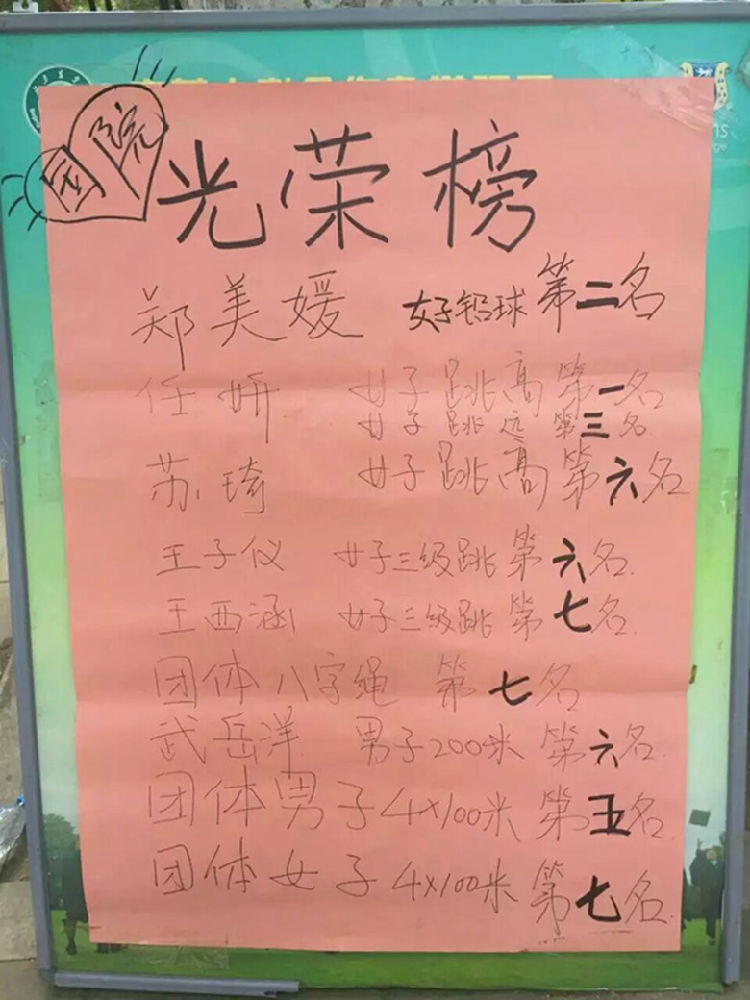 国院
光荣榜
郑美媛 女子铅球第二名
任妍 女子跳高第一名
女子跳远第三名
苏琦 女子跳高第六名
王子仪 女子三级跳第六名.
王西涵 女子三级跳第七名.
团体八字绳 第七名
武岳洋 男子200米 第六名.
团体男子4×100米 第五名.
团体女子4×100米 第七名.